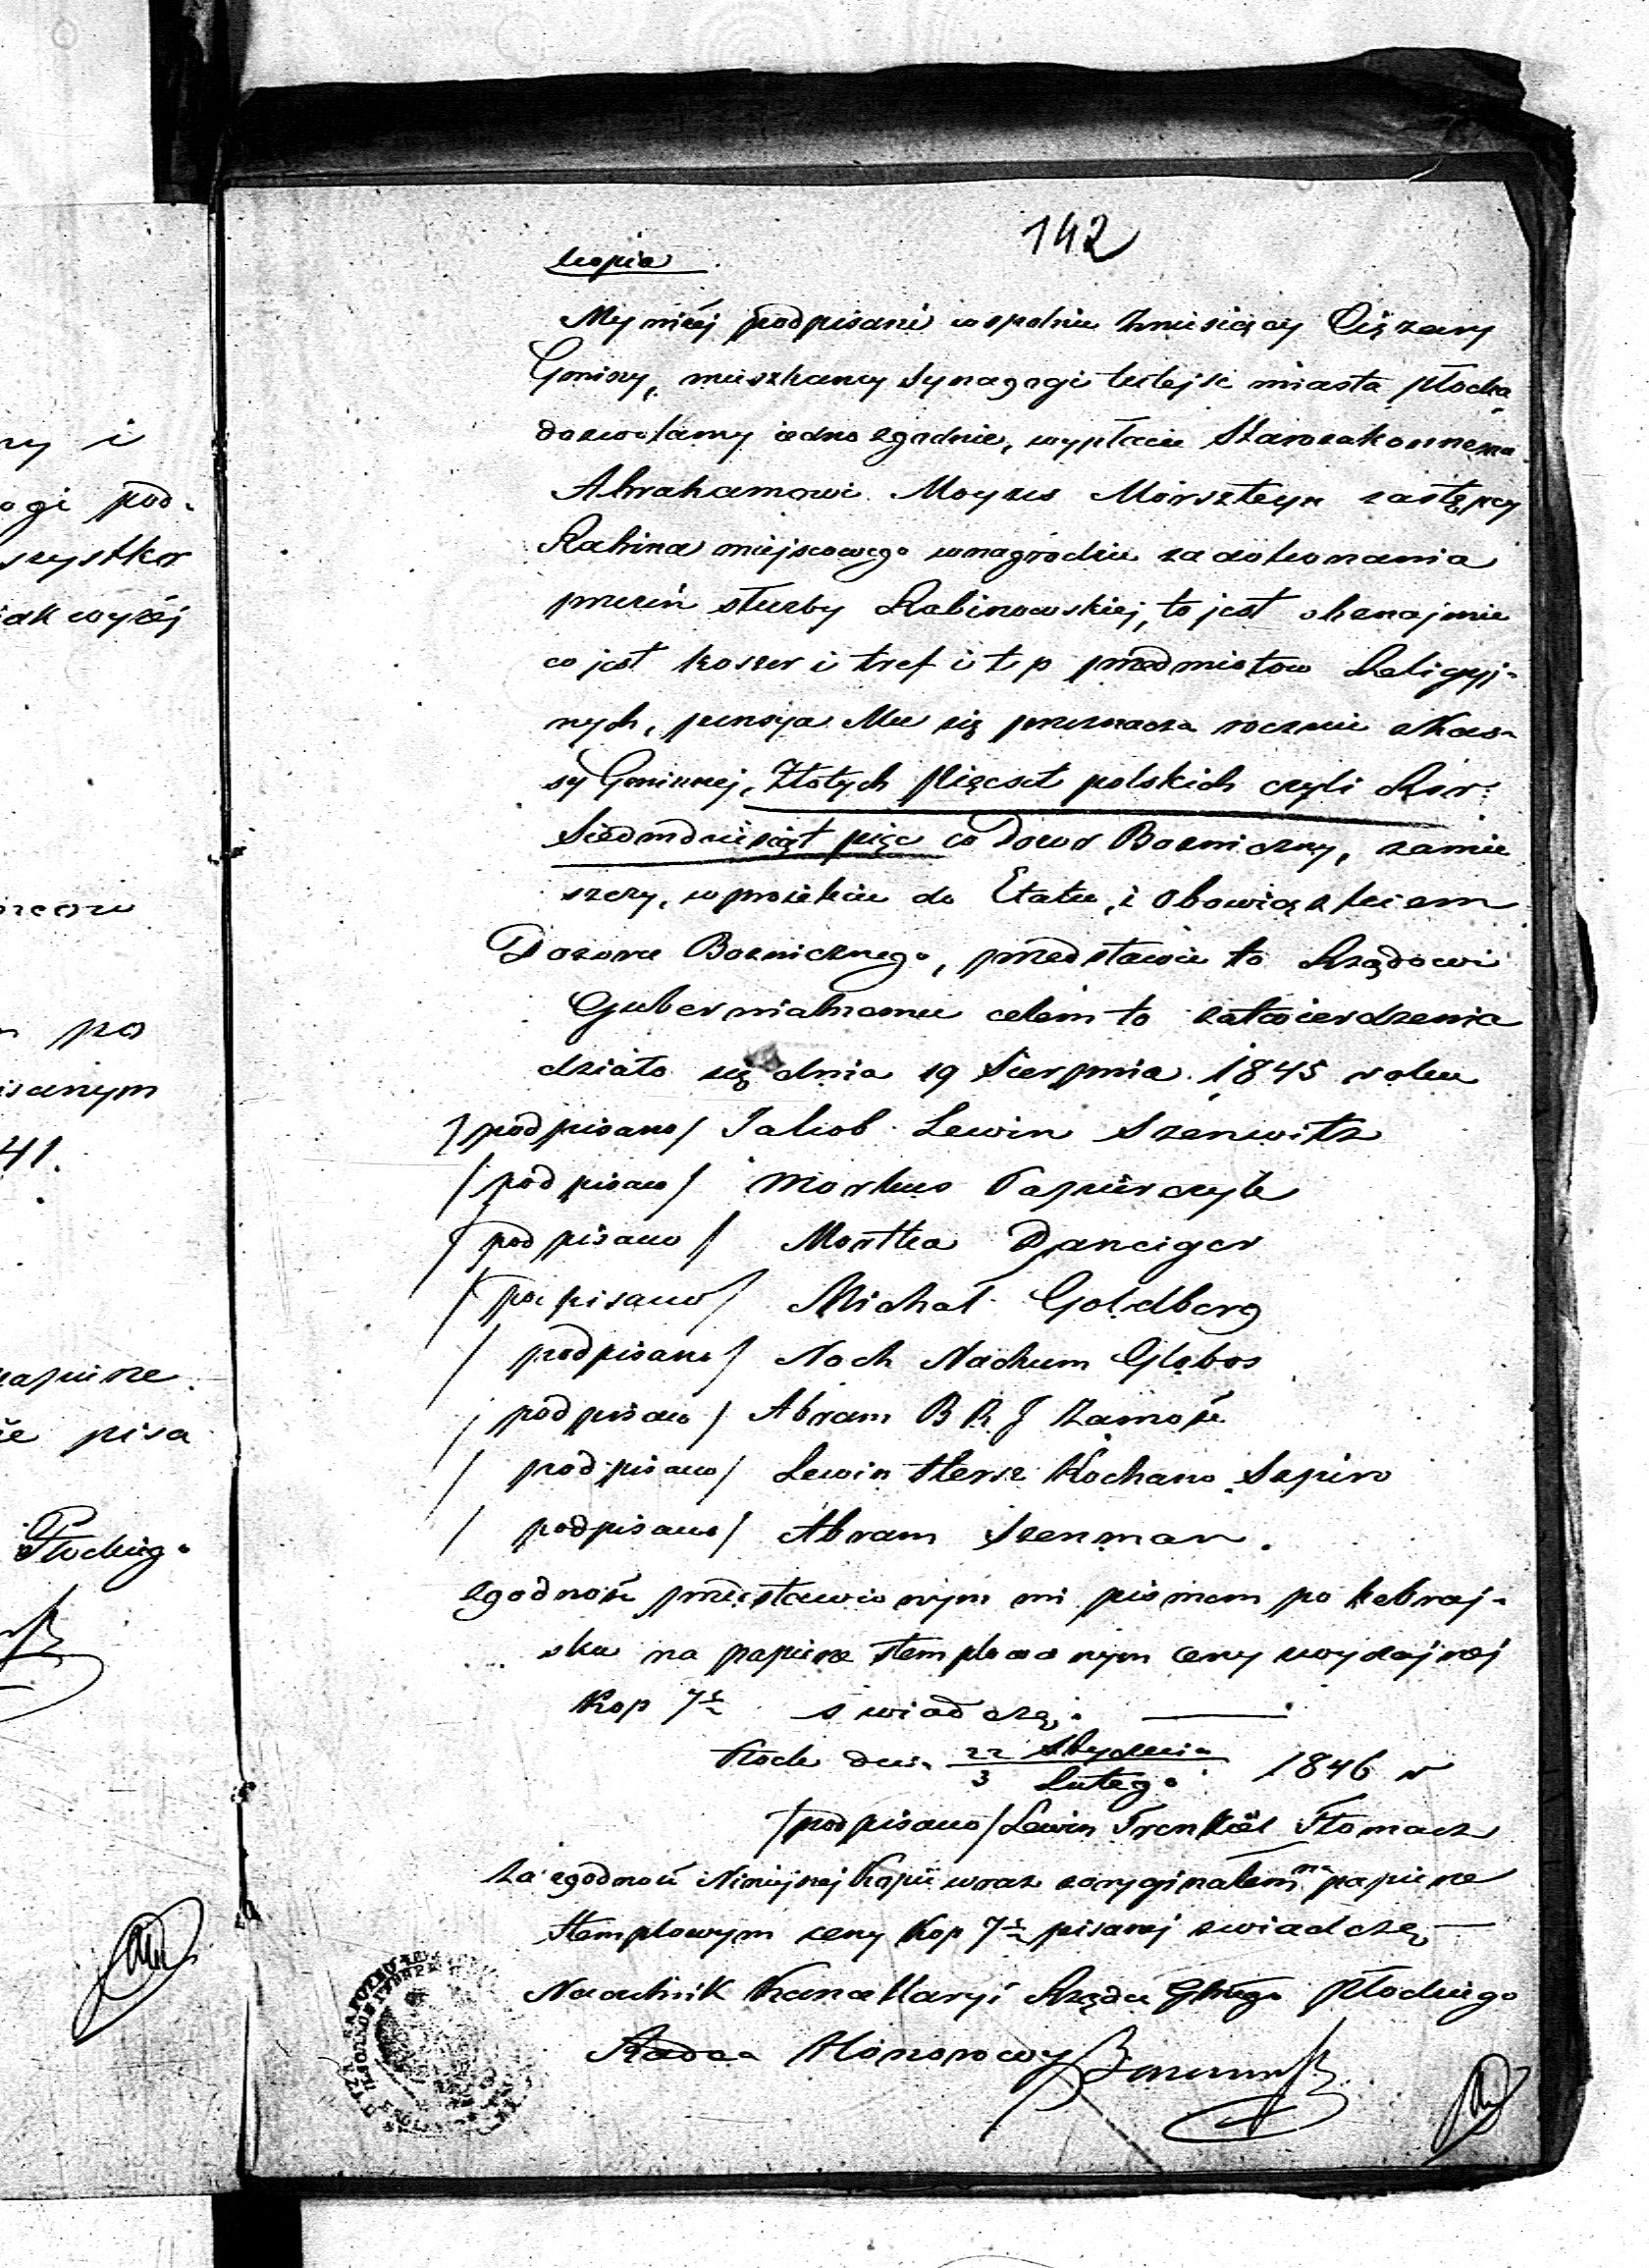 142
kopia
My niżej podpisani wspolnie znusięcy Ciężary
Gminy, mieszkancy Synagogi tutejsi miasta Płocka
dozwolamy jednozgodnie, wypłacie Starozakonnemu
Abrahamowi Moyzes Morszteyn zastępcy
Rabina miejscowego wnagrodzie za dokonania
przezeń służby Rabinowskiej, to jest obznajmie
co jest koszer i tref i t p przedmiotow Religyj-
nych, pensya Mu się przeznacza rocznie z Kas-
sy Gminnej, Złotych Pięcset polskich czyli Rsr:
Siedmdziesiąt pięc co Dozor Bozniczny, zamie
szczy, w projekcie do Etatu, i obowiązkiem
Dozoru Boznicznego, przedstawie to Rządowi
Gubernialnemu celem to zatwierdzenia
działo się dnia 19 Sierpnia 1845 roku
/podpisano/ Jakob Lewin Szenwitz
/podpisano/ Morkus Papierczyk
/podpisano/ Mortka Dganciger
/popisano/ Michał Goldberg
/podpisano/ Noch Nachum Globos
/podpisano/ Abram B R J Zamość
/podpisano/ Lewin Hersz Kochano Szpiro
/podpisano/ Abram Szenman.
zgodnosć przedstawionym mi pismem po hebraj-
sku na papierze stemplowanym ceny zwyczajnej
Kop 7½ swiadczę. —
Płock dnia 22 Stycznia / 3 Lutego 1846 r
/podpisano/ Lewin Frenkiel Tłomacz
Za zgodność Niniejszej Kopii wraz zoryginałem na papierze
stemplowym ceny Kop 7½ pisanej zwiadczę —
Naczelnik Kancellaryi Rządu Gblnego Płockiego
Radca Honorowy
ny i
ogi pod-
szystko
iak wyżej
po
isanym
41.
papierze
pisa
Płockiego